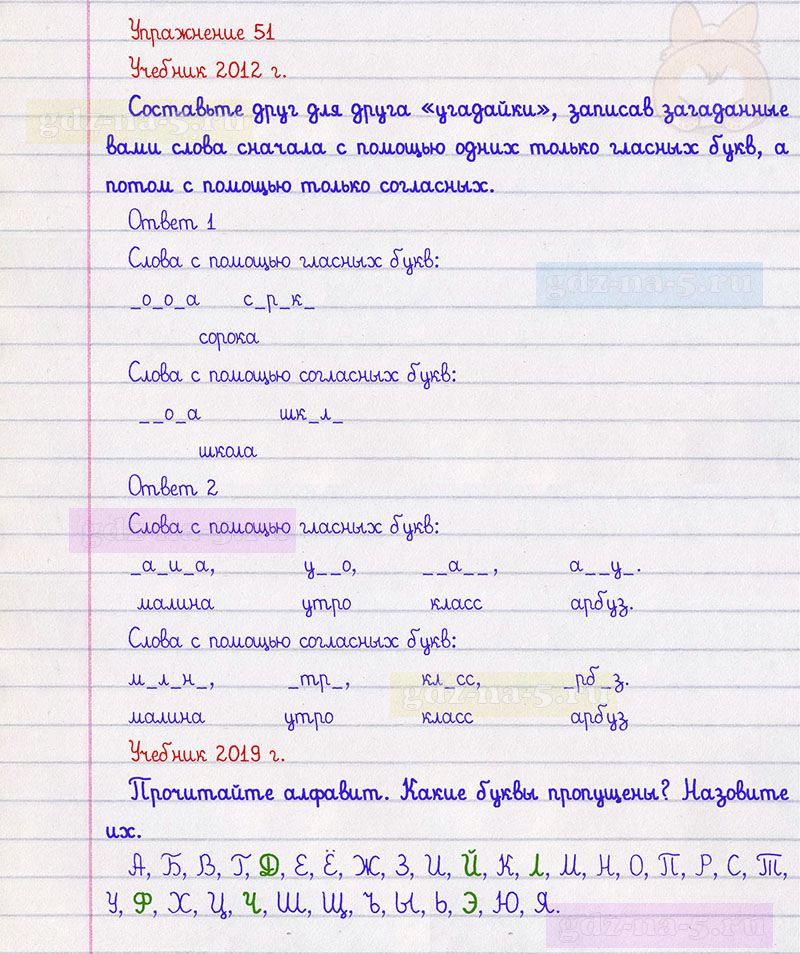 Упражнение 51
Учебник 2012 г.
Составьте друг для друга «угадайки», записав загаданные
вами слова сначала с помощью одних только гласных букв, а
потом с помощью только согласных.
gdz-na-5.ru
Ответ 1
Слова с помощью гласных букв:
gdz-na-5.ru
_о_о_а с_р_к_
сорока
Слова с помощью согласных букв:
__о_а шк_л_
школа
Ответ 2
Слова с помощью гласных букв:
gdz-na-5.ru
_а_и_а, у__о, __а__, а__у_.
малина утро класс арбуз.
Слова с помощью согласных букв:
м_л_н_, _тр_, кл_сс, _рб_з.
gdz-na-5.ru
малина утро класс арбуз
Учебник 2019 г.
Прочитайте алфавит. Какие буквы пропущены? Назовите
их.
А, Б, В, Г, Д, Е, Ё, Ж, З, И, Й, К, Л, М, Н, О, П, Р, С, Т,
У, Ф, Х, Ц, Ч, Ш, Щ, Ъ, Ы, Ь, Э, Ю, Я.
gdz-na-5.ru